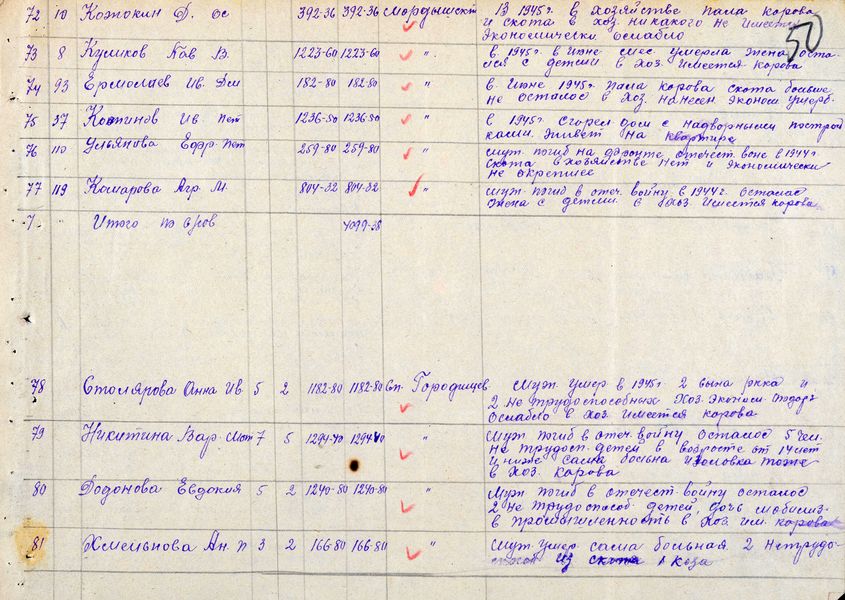 50
72 10 Кожокин Д. Ос 392-36 392-36 Мордышск В 1945 г. в хозяйстве пала корова
и скота в хоз. никакого не имеет
экономически ослабло
73 8 Куликов Пав В. 1223-60 1223-60 " в 1945 г. в Июне мес. умерла жена оста-
лся с детьми в хоз. имеется корова
74 93 Ермолаев Ив. Дм 182-80 182-80 " в Июне 1945 г. пала корова скота больше
не осталос в хоз. нанесен эконом ущерб.
75 37 Ив Пет 1236-50 1236-50 " в 1945 г. Сгорел дом с надворными построй
ками. живет на квартире
76 110 Ульянова Ефр. Пет 259-80 259-80 " муж погиб на фронте отечест воне в 1944 г.
скота в хозяйстве нет и экономически
не окрепшее
77 119 Комарова Агр. М. 804-32 804-32 " муж погиб в отеч. войну в 1944 г. осталас
жена с детьми в хоз. имеется корова
7 Итого 7 дворов 4099-38
78 Столярова Анна Ив 5 2 1182-80 1182-80 Городищев муж умер в 1945 г. 2 сына ркка и
2 не трудоспособных хоз. экономи
ослабло в хоз. имеется корова
79 Никитина Вар. 7 5 1294-40 1294-40 " муж погиб в отеч. войну осталос 5 чел.
не трудосп. детей в возросте от 14 лет
и ниже сама больна и золовка тоже
в хоз. корова
80 Додонова Евдокия 5 2 1240-80 1240-80 " муж погиб в отечест. войну осталос
2 не трудоспособ. детей, доч мобилиз.
в промышленность в хоз. им. корова
81 Хмельнова Ан. П 3 2 166-80 166-80 " муж умер сама больная 2 нетрудо-
из скота 1 коза